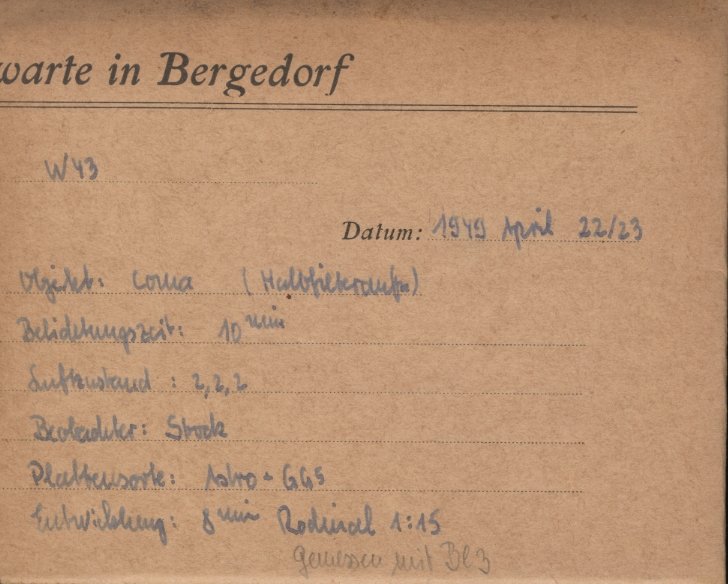 warte in Bergedorf
W43
Datum: 1949 April 22/23
Objekt: Coma (Halbfilteraufn)
Belichtungszeit: 10 min
Luftzustand : 2,2,2
Beobachter: Stock
Plattensorte: Astro - GG5
Entwicklung: 8 min Rodinal 1:15
gemessen mit Bl 3